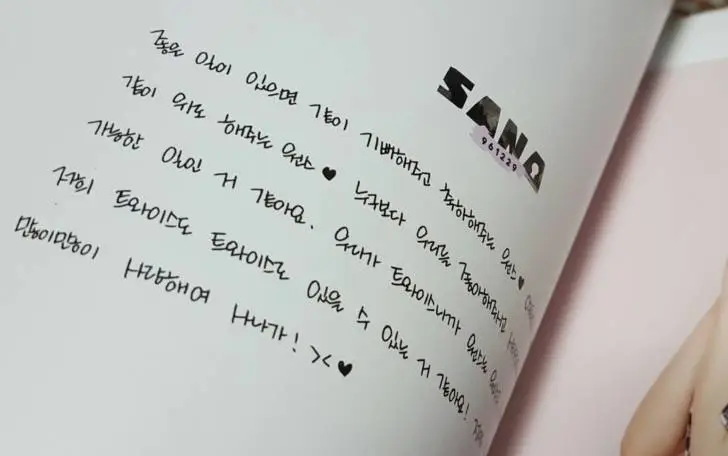 SANA
961229
좋은 일이 있으면 같이 기뻐해주고 축하해주는 원스♥
같이 위로 해주는 원스♥ 누구보다 우리를 좋아해주시고
가능한 일인 거 같아요. 우리가 트와이스니까 원스는
저희 트와이스도 트와이스로 있을 수 있는 거 같아요!
많이많이 사랑해여 사나가! ><♥